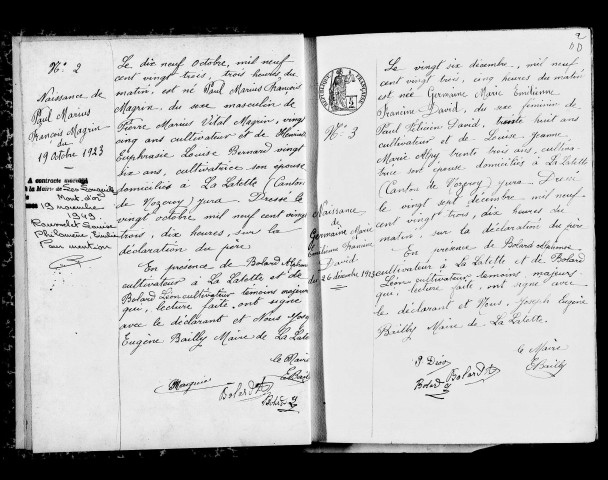 N° 2
Naissance de
Paul Marius
François Magnin
du
19 Octobre 1923
a contracté mariage
à la Mairie de Les Longevilles
Mont d'or
19 novembre
1949
Louise
Philomène
Pour mention
Le dix neuf Octobre, mil neuf
cent vingt trois, trois heures du
matin, est né Paul Marius François
Magnin, du sexe masculin de
Pierre Marius Vital Magnin, vingt
cinq ans cultivateur et de Hermine
Euphrasie Louise Bernard vingt
six ans, cultivatrice son épouse
domiciliés à La Latette (Canton
de Nozeroy) Jura. Dressé le
vingt octobre mil neuf cent vingt
trois, dix heures, sur la
déclaration du père
En présence de Bolard Alphonse
cultivateur à La Latette et de
Bolard Léon cultivateur témoins majeurs
qui, lecture faite, ont signé
avec le déclarant et Nous Joseph
Eugène Bailly Maire de La Latette
Le Maire
Magnin
Bolard A
EBailly
Bolard
2
N° 3
Naissance
de
Germaine Marie
Emilienne Francine
David
du 26 décembre 1923
Le vingt six décembre, mil neuf
cent vingt trois, cinq heures du matin
est née Germaine Marie Emilienne
Francine David, du sexe féminin de
Paul David, trente huit ans
cultivateur et de Louise Jeanne
Marie trente trois ans, cultiva
trice son épouse domiciliés à La Latette
(Canton de Nozeroy) Jura. Dressé
le vingt sept décembre mil neuf
cent vingt trois, dix heures du
matin sur la déclaration du père
En présence de Bolard Alphonse
cultivateur à La Latette et de Bolard
Léon cultivateur témoins majeurs
qui, lecture faite, ont signé avec
le déclarant et Nous, Joseph Eugène
Bailly Maire de La Latette.
Le Maire
P David
Bolard A
EBailly
Bolard